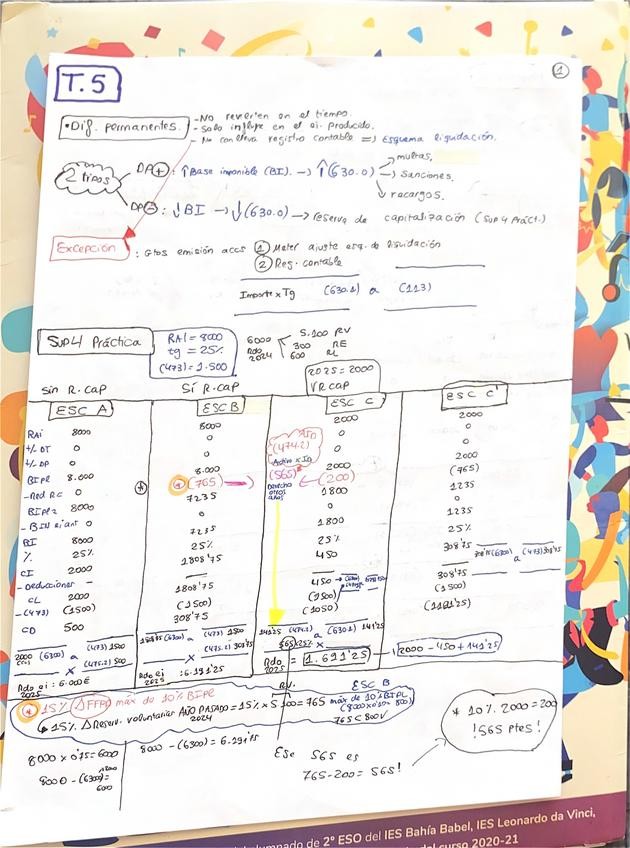 T.5
1
• Dif. permanentes.
- No revierten en el tiempo.
- Solo influye en el ej. producido.
- No conlleva registro contable => Esquema liquidación.
2 tipos
DP+ : ↑Base imponible (BI). → ↑(630.0)
multas.
→ Sanciones.
recargos.
DP- : ↓BI → ↓(630.0) → reserva de capitalización (Sup 4 Práct.)
Excepción : Gtos emisión accs ① Meter ajuste esq. de liquidación
② Reg. contable
Importe x Tg (630.1) a (113)
Sup 4 Práctica
RAI = 8000
tg = 25%
(473) = 1.500
6000
Rdo
2024
5.100 RV
300 RE
600 RL
2025 = 2000
VRcap
Sin R.cap
Sí R.cap
ESC A
ESC B
ESC C
ESC C'
RAI 8000
+/- DT 0
+/- DP 0
BIPR 8.000
- Red RC 0
BIPR2 8000
0
BI 8000
% 25%
CI 2000
- Deducciones -
CL 2000
- (473) (1500)
CD 500
8000
0
0
8.000
* (765)
7235
0
7235
25%
1808'75
1808'75
(1500)
308'75
2000
0
0
2000
(200)
1800
0
1800
25%
450
450
(1500)
(1050)
(474.2)
Activo x ID
(565)
Derecho
otros
años
2000
0
0
2000
(765)
1235
0
1235
25%
308'75
308'75 (6300) a (473) 308'75
308'75
(1500)
(1191'25)
2000 (6300) a (473) 1500
(475.2) 500
Rdo ej : 6.000€
2025
1808'75 (6300) a (473) 1500
(475.2) 308'75
Rdo ej : 6.191'25
2025
141'25 (474.2) a (630.1) 141'25
565x25%
Rdo = 1.691'25
2025
2000 - 450 + 141'25
* 15% △FFPP máx do 10% BIPR
R.V.
ESC B
↳ 15% △Reserv. voluntarias AÑO PASADO = 15% x 5.100 = 765
2024
máx de 10% BIPR
(8000x0'10 = 800)
765 < 800 ✓
8000 x 0'75 = 6000
8000 - (6300) =
2000
8000 - (6300) = 6.191'75
Ese 565 es
765 - 200 = 565!
* 10% 2000 = 200
!565 ptes!
alumnado de 2º ESO del IES Bahía Babel, IES Leonardo da Vinci,
del curso 2020-21